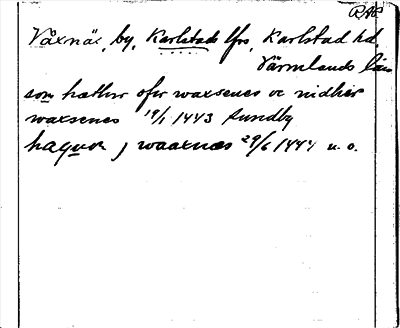 RAP
Våxnäs, by, Karlstads lfrs, Karlstad hd,
Värmlands län
som hæther ofw waxsenes oc nidher
waxsenes 19/1 1443 Sundby
haquon j waaxnæs 29/6 1444 u. o.